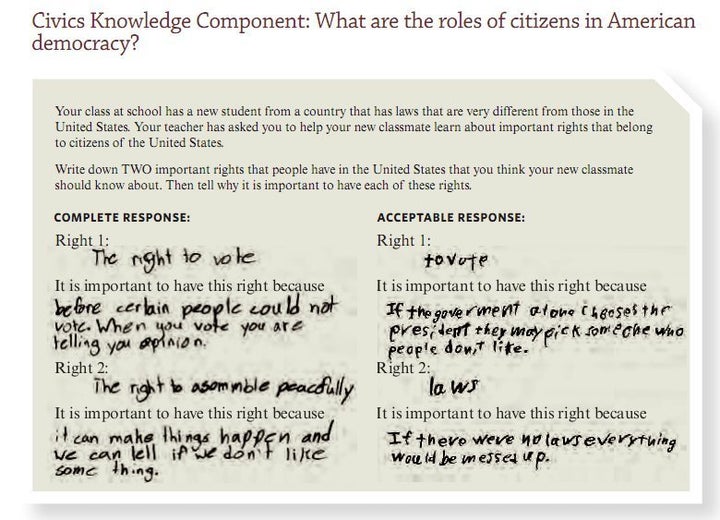 Civics Knowledge Component: What are the roles of citizens in American
democracy?
Your class at school has a new student from a country that has laws that are very different from those in the
United States. Your teacher has asked you to help your new classmate learn about important rights that belong
to citizens of the United States.
Write down TWO important rights that people have in the United States that you think your new classmate
should know about. Then tell why it is important to have each of these rights.
COMPLETE RESPONSE:
Right 1:
The right to vote
It is important to have this right because
before certain people could not
vote. When you vote you are
telling you opinion.
Right 2:
The right to asommble peacfully
It is important to have this right because
it can make things happen and
we can tell if we don't like
some thing.
ACCEPTABLE RESPONSE:
Right 1:
to vote
It is important to have this right because
If the goverment alone chooses the
president they may pick someone who
people don,t like.
Right 2:
laws
It is important to have this right because
If there were no laws everything
would be messed up.